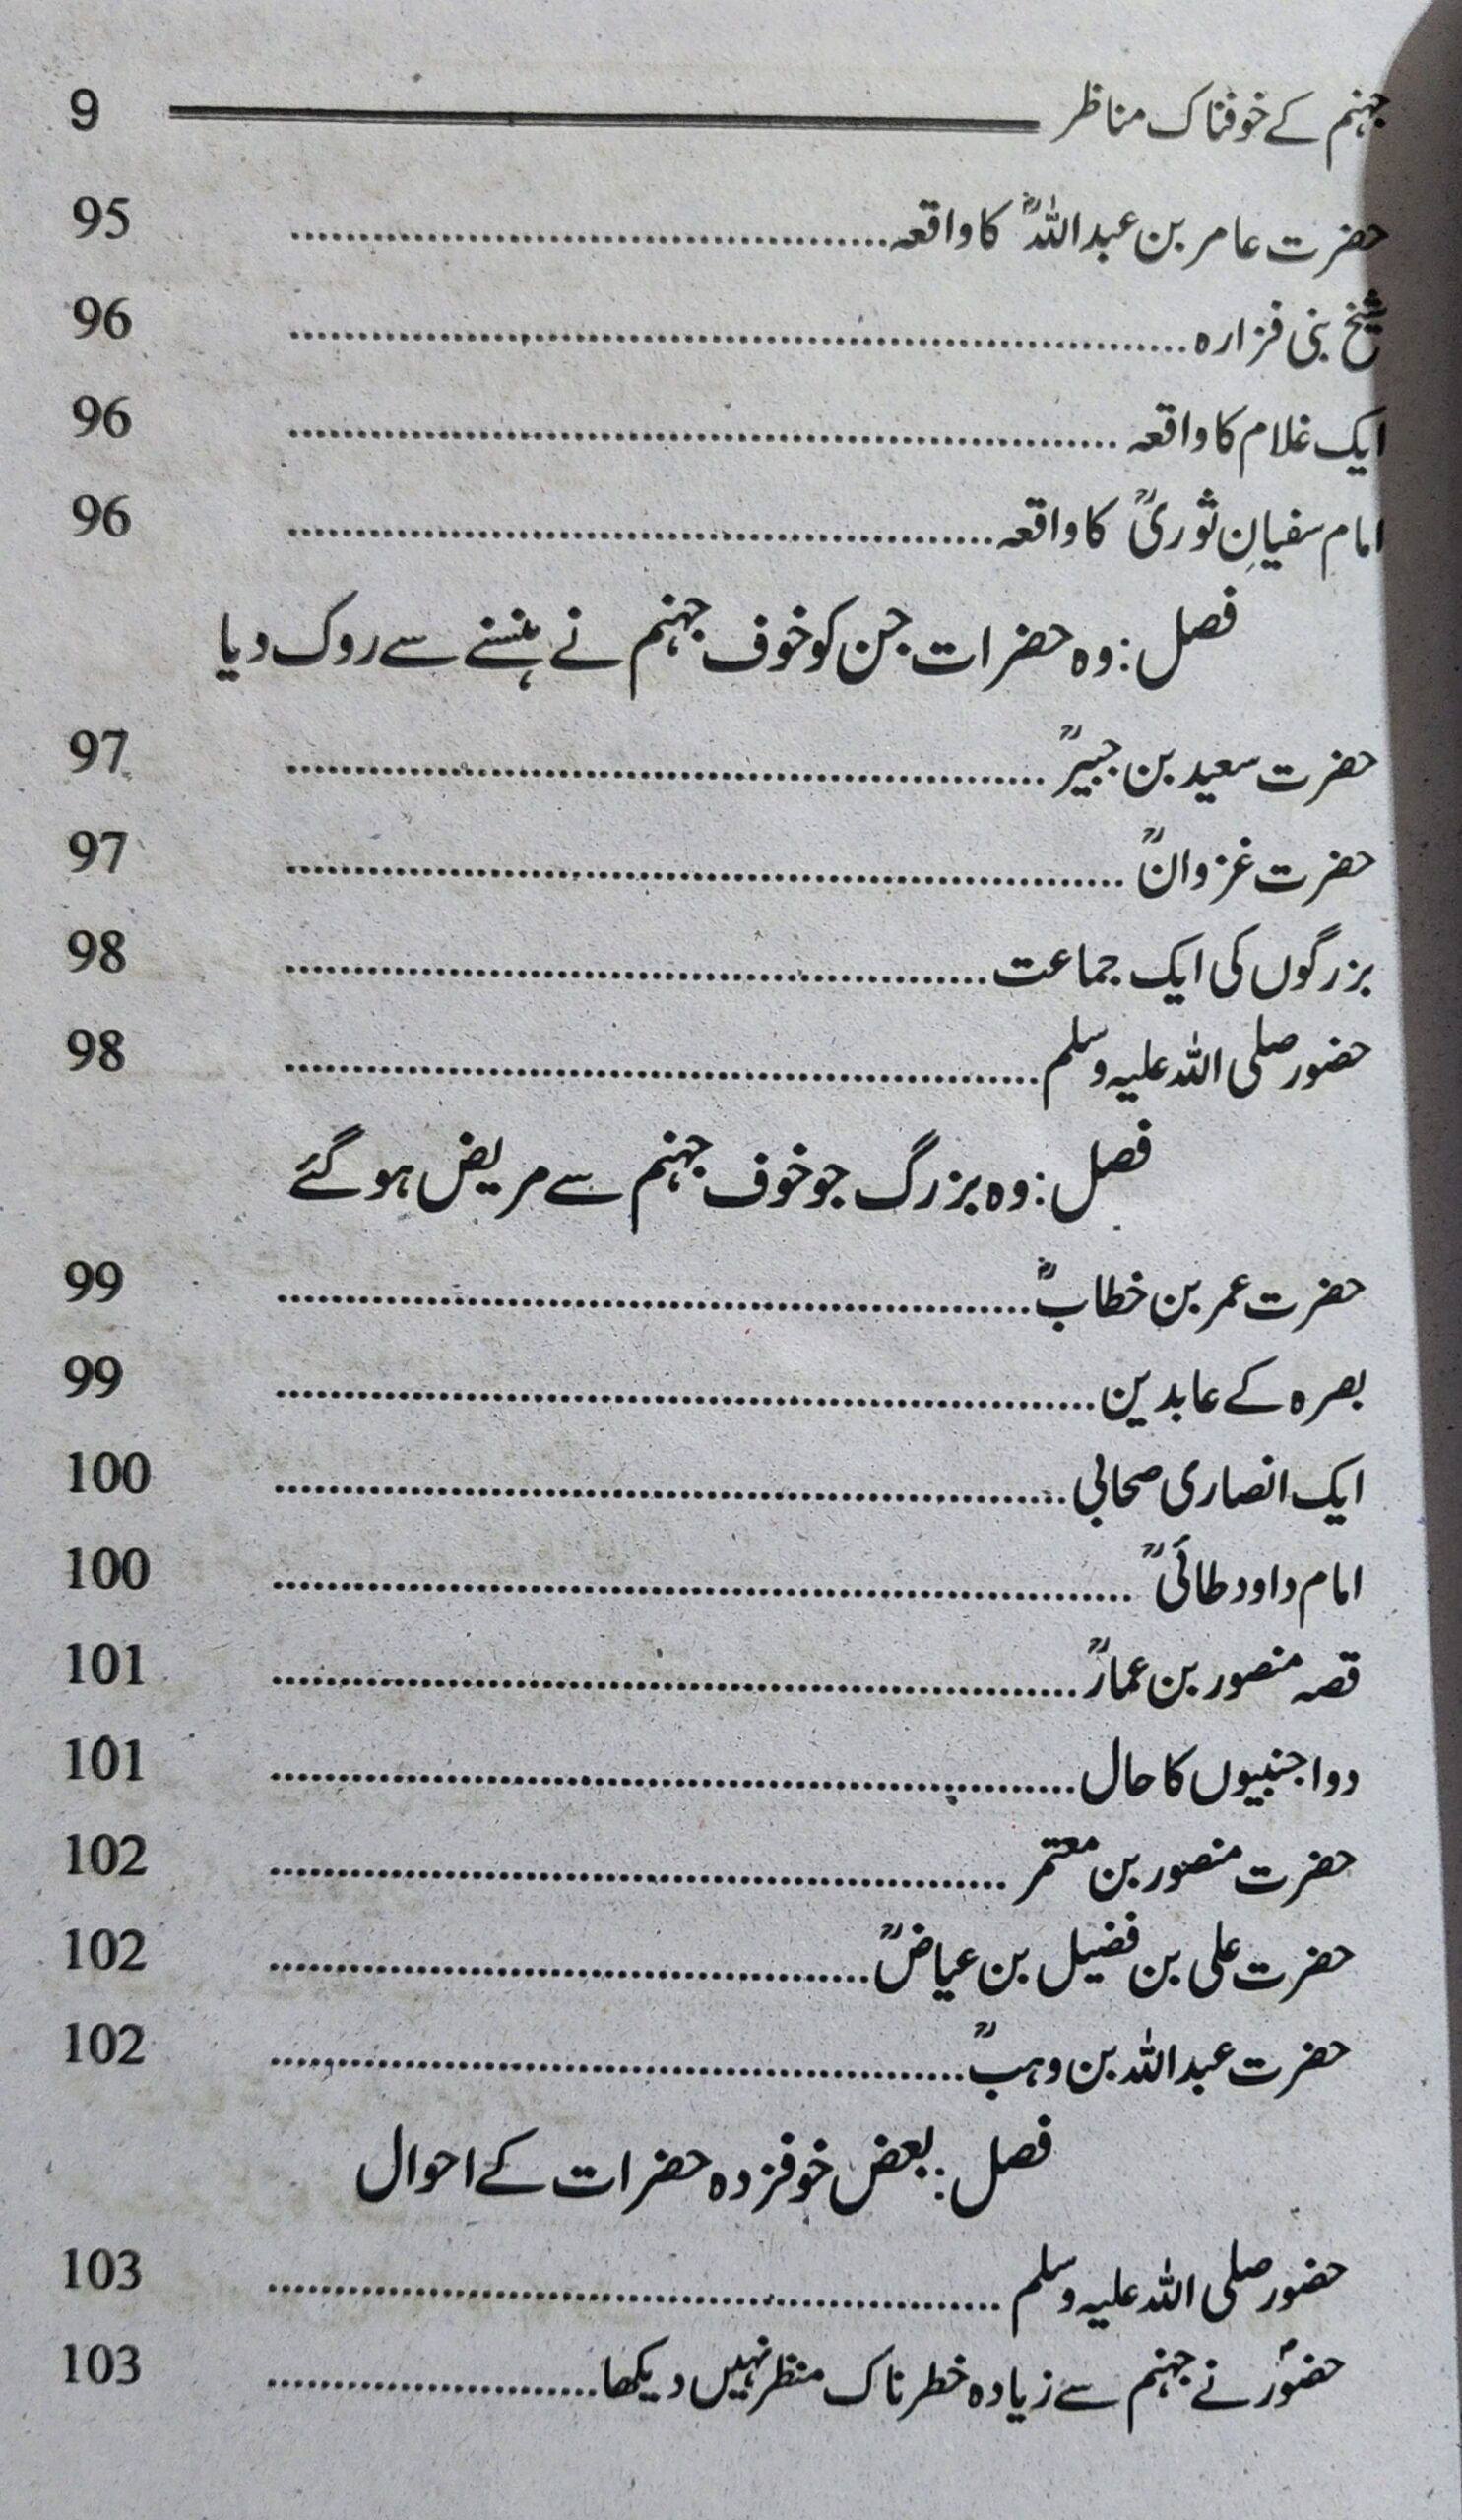 جہنم کے خوفناک مناظر 9
حضرت عامر بن عبداللہؓ کا واقعہ 95
شیخ بنی فزارہ 96
ایک غلام کا واقعہ 96
امام سفیانِ ثوریؒ کا واقعہ 96
فصل: وہ حضرات جن کو خوف جہنم نے ہنسنے سے روک دیا
حضرت سعید بن جبیرؒ 97
حضرت غزوانؒ 97
بزرگوں کی ایک جماعت 98
حضور صلی اللہ علیہ وسلم 98
فصل: وہ بزرگ جو خوف جہنم سے مریض ہو گئے
حضرت عمر بن خطابؓ 99
بصرہ کے عابدین 99
ایک انصاری صحابی 100
امام داود طائیؒ 100
قصہ منصور بن عمارؒ 101
دو اجنبیوں کا حال 101
حضرت منصور بن معتمر 102
حضرت علی بن فضیل بن عیاضؒ 102
حضرت عبداللہ بن وہبؒ 102
فصل: بعض خوفزدہ حضرات کے احوال
حضور صلی اللہ علیہ وسلم 103
حضورؐ نے جہنم سے زیادہ خطرناک منظر نہیں دیکھا 103